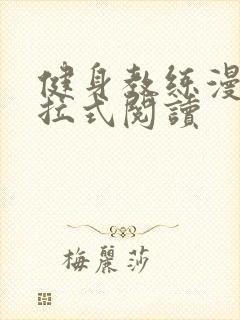 健身教练漫
拉式閱讀
梅麗莎